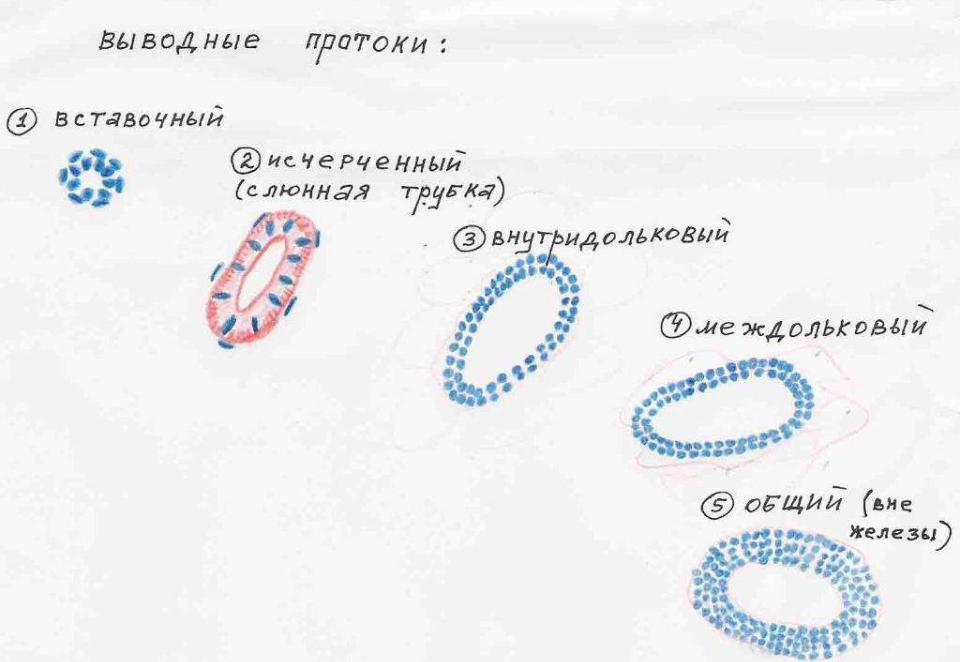 ВЫВОДНЫЕ ПРОТОКИ:
① ВСТАВОЧНЫЙ
② ИСЧЕРЧЕННЫЙ
(СЛЮННАЯ ТРУБКА)
③ ВНУТРИДОЛЬКОВЫЙ
④ МЕЖДОЛЬКОВЫЙ
⑤ ОБЩИЙ (вне
железы)